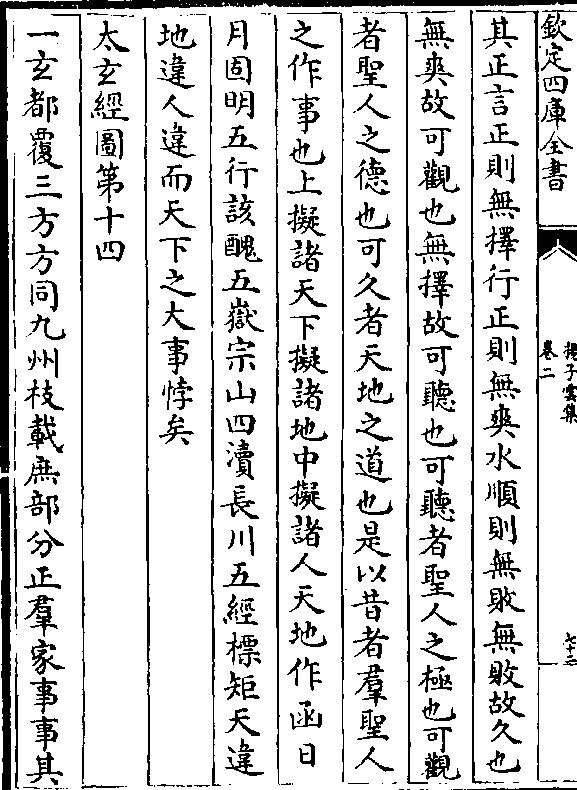 欽定四庫全書
揚子雲集
卷二
七十二
其正言正則無擇行正則無爽水順則無敗無敗故久也
無爽故可觀也無擇故可聽也可聽者聖人之極也可觀
者聖人之德也可久者天地之道也是以昔者羣聖人
之作事也上擬諸天下擬諸地中擬諸人天地作函日
月固明五行該醜五嶽宗山四瀆長川五經標矩天違
地違人違而天下之大事悖矣
太玄經圖第十四
一玄都覆三方方同九州枝載庶部分正羣家事事其